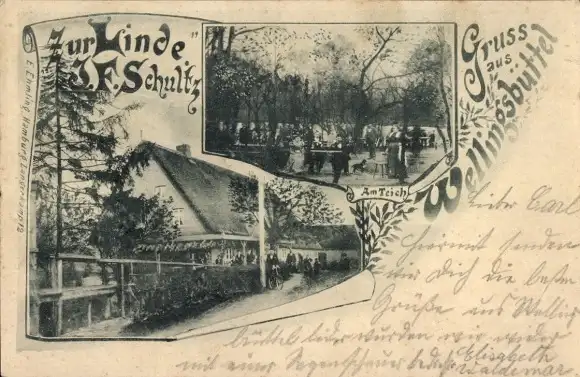 "Zur Linde"
J. F. Schultz
Gruss
aus
Wellingsbüttel
Am Teich
Lieber Carl
Hiermit senden
wir Dich die beste
Grüße aus Wellings
büttel leider wurden wir wieder
mit einer Regenschauer
Elisabeth
Waldemar